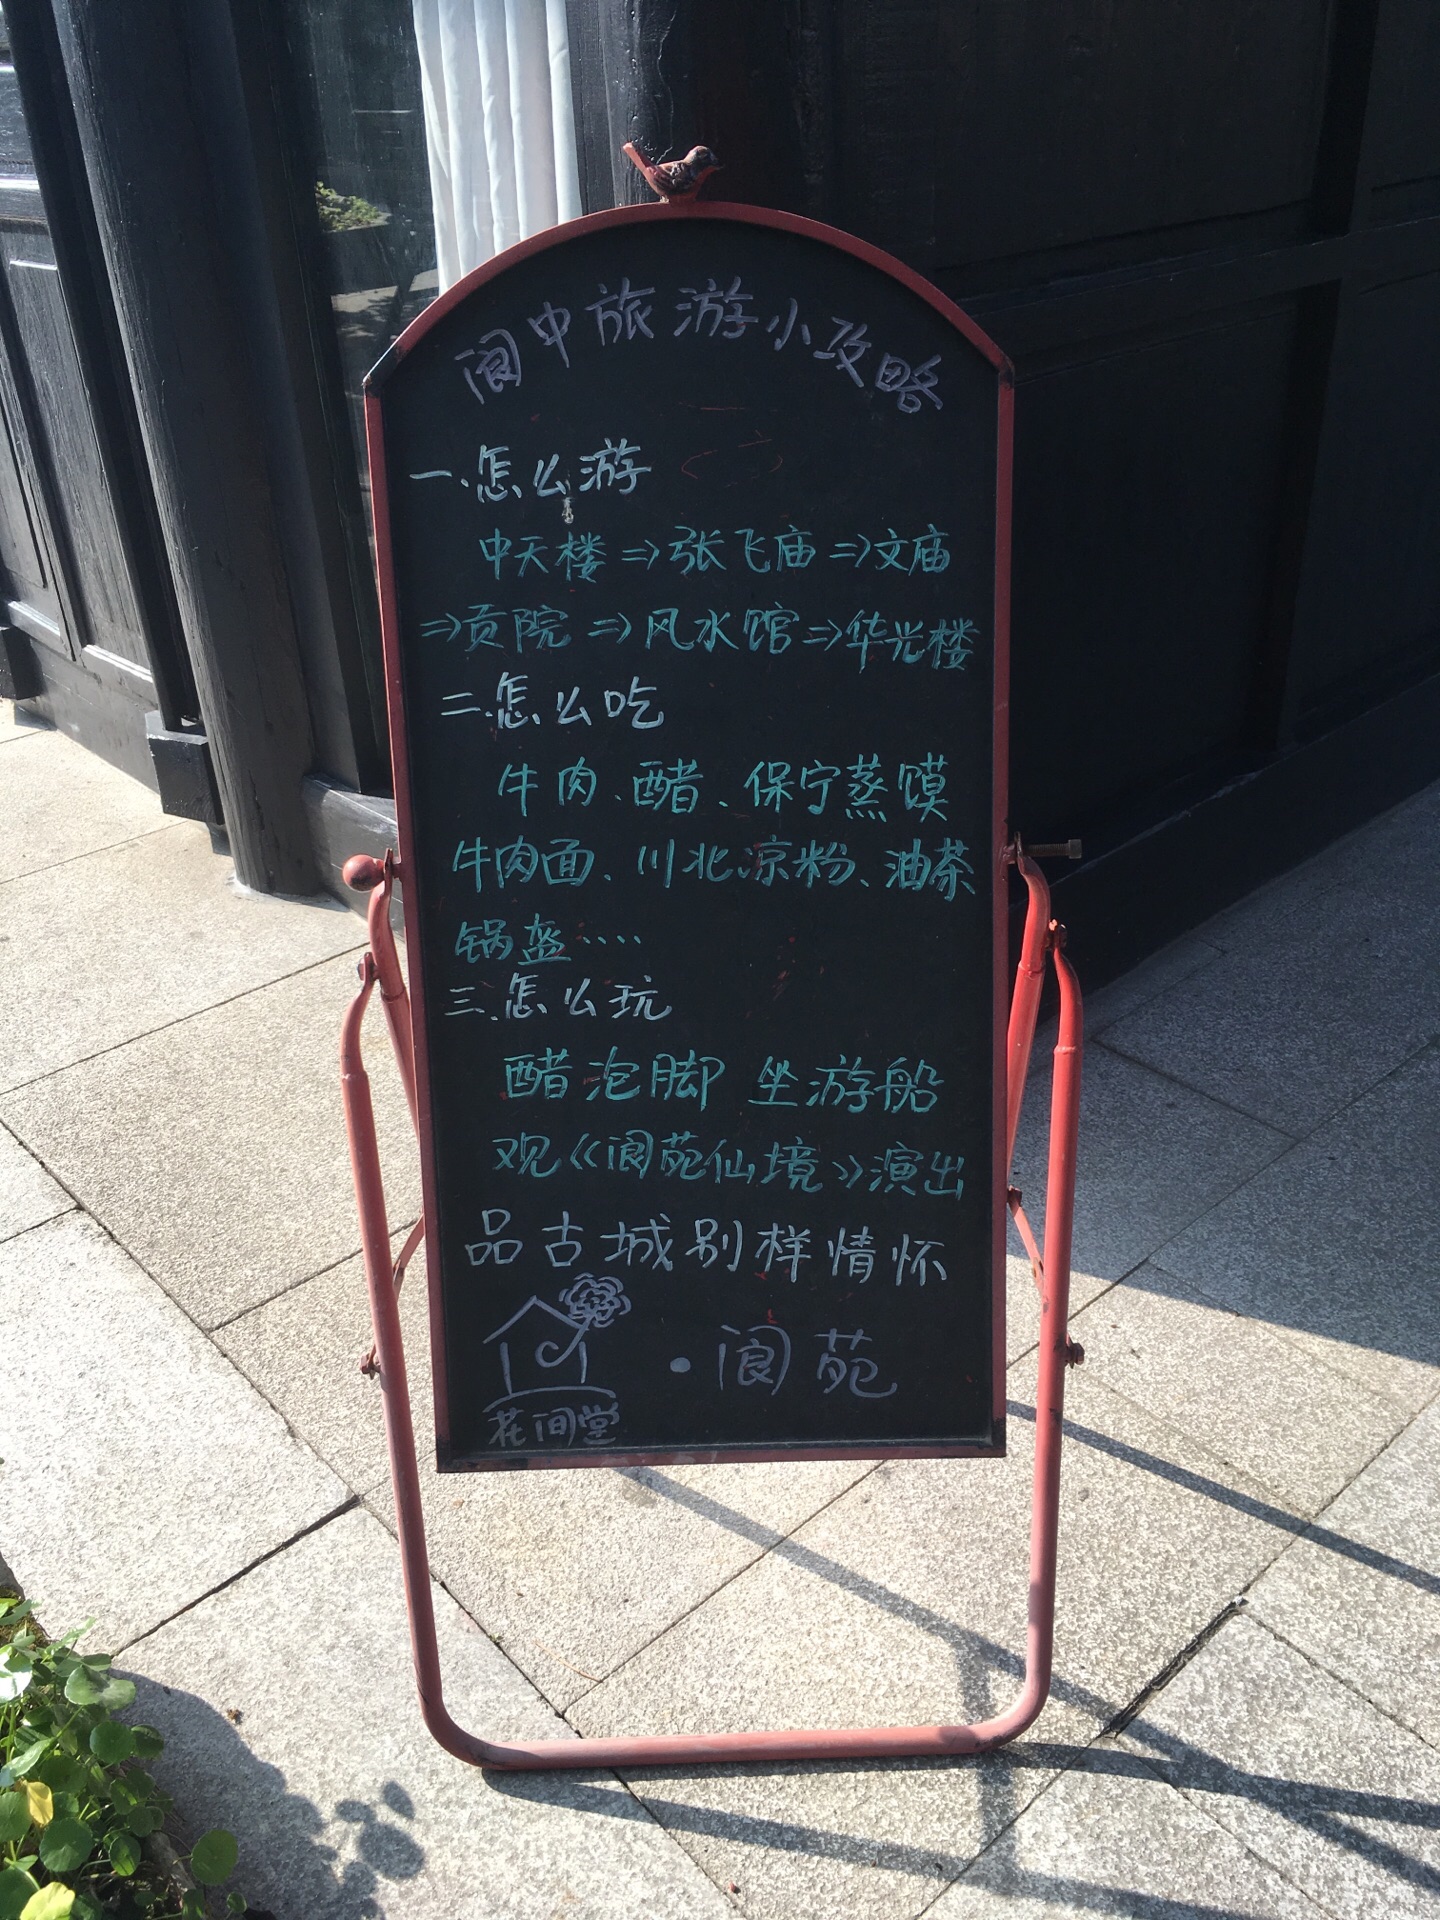 阆中旅游小攻略
一.怎么游
中天楼⇒张飞庙⇒文庙
⇒贡院⇒风水馆⇒华光楼
二.怎么吃
牛肉、醋、保宁蒸馍
牛肉面、川北凉粉、油茶
锅盔····
三.怎么玩
醋泡脚 坐游船
观《阆苑仙境》演出
品古城别样情怀
·阆苑
花间堂